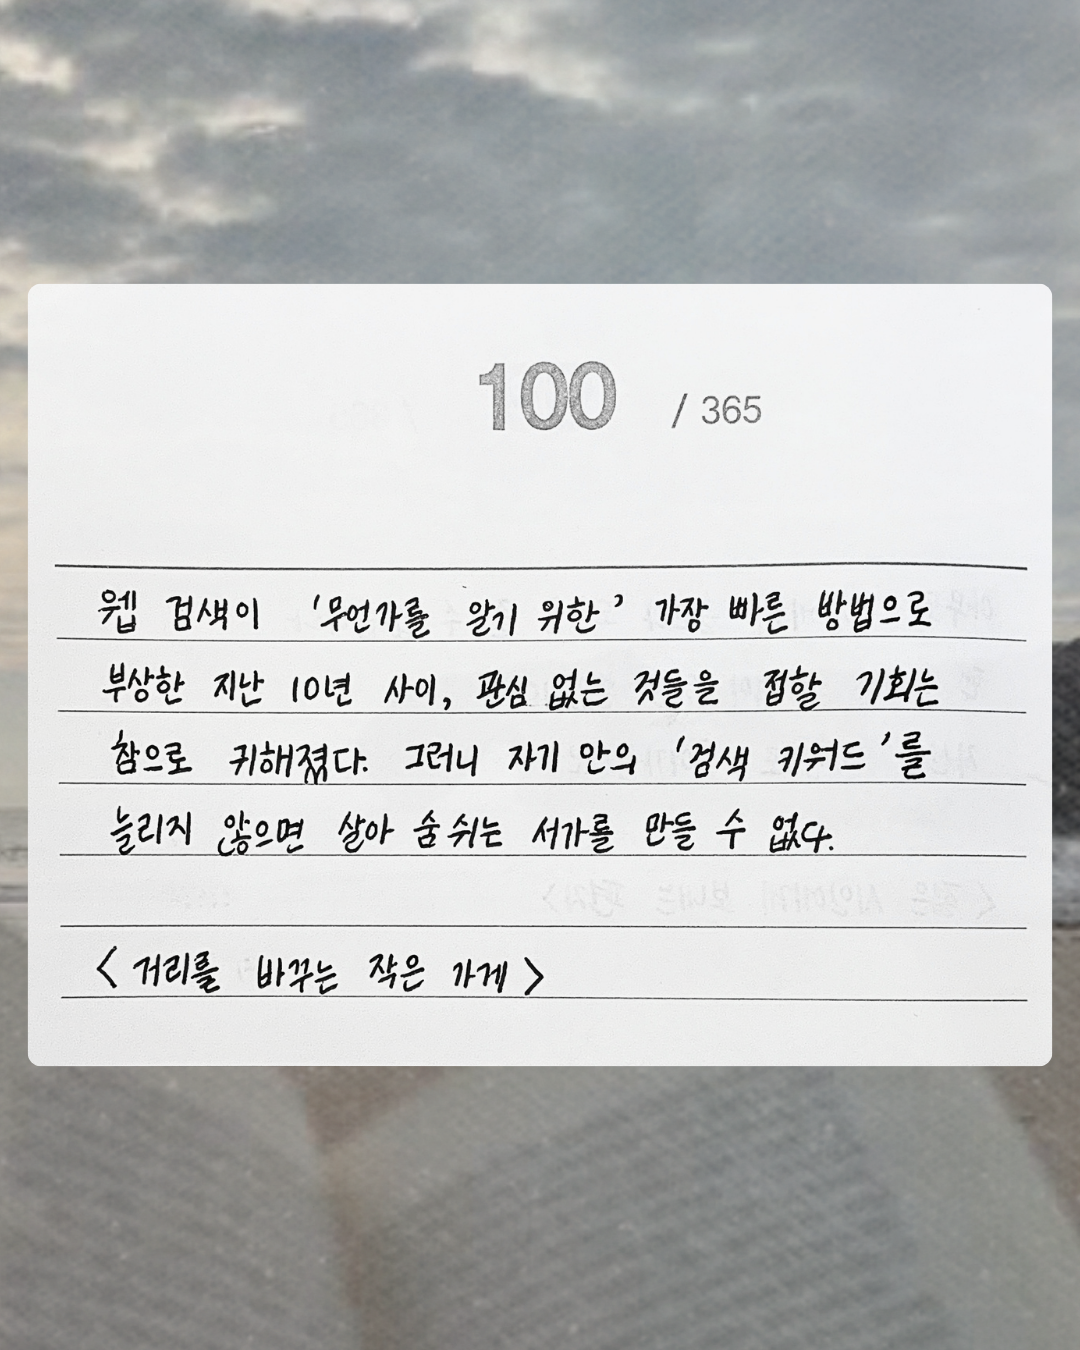 100 / 365
웹 검색이 '무언가를 알기 위한' 가장 빠른 방법으로
부상한 지난 10년 사이, 관심 없는 것들을 접할 기회는
참으로 귀해졌다. 그러니 자기 안의 '검색 키워드'를
늘리지 않으면 살아 숨쉬는 서가를 만들 수 없다.
<거리를 바꾸는 작은 가게>